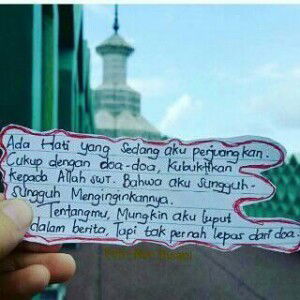 Ada Hati yang sedang aku perjuangkan.
Cukup dengan doa-doa, kubuktikan
kepada Allah SWT. Bahwa aku sungguh-
sungguh Menginginkannya.
Tentangmu, Mungkin aku luput
dalam berita, Tapi tak pernah lepas dari doa.